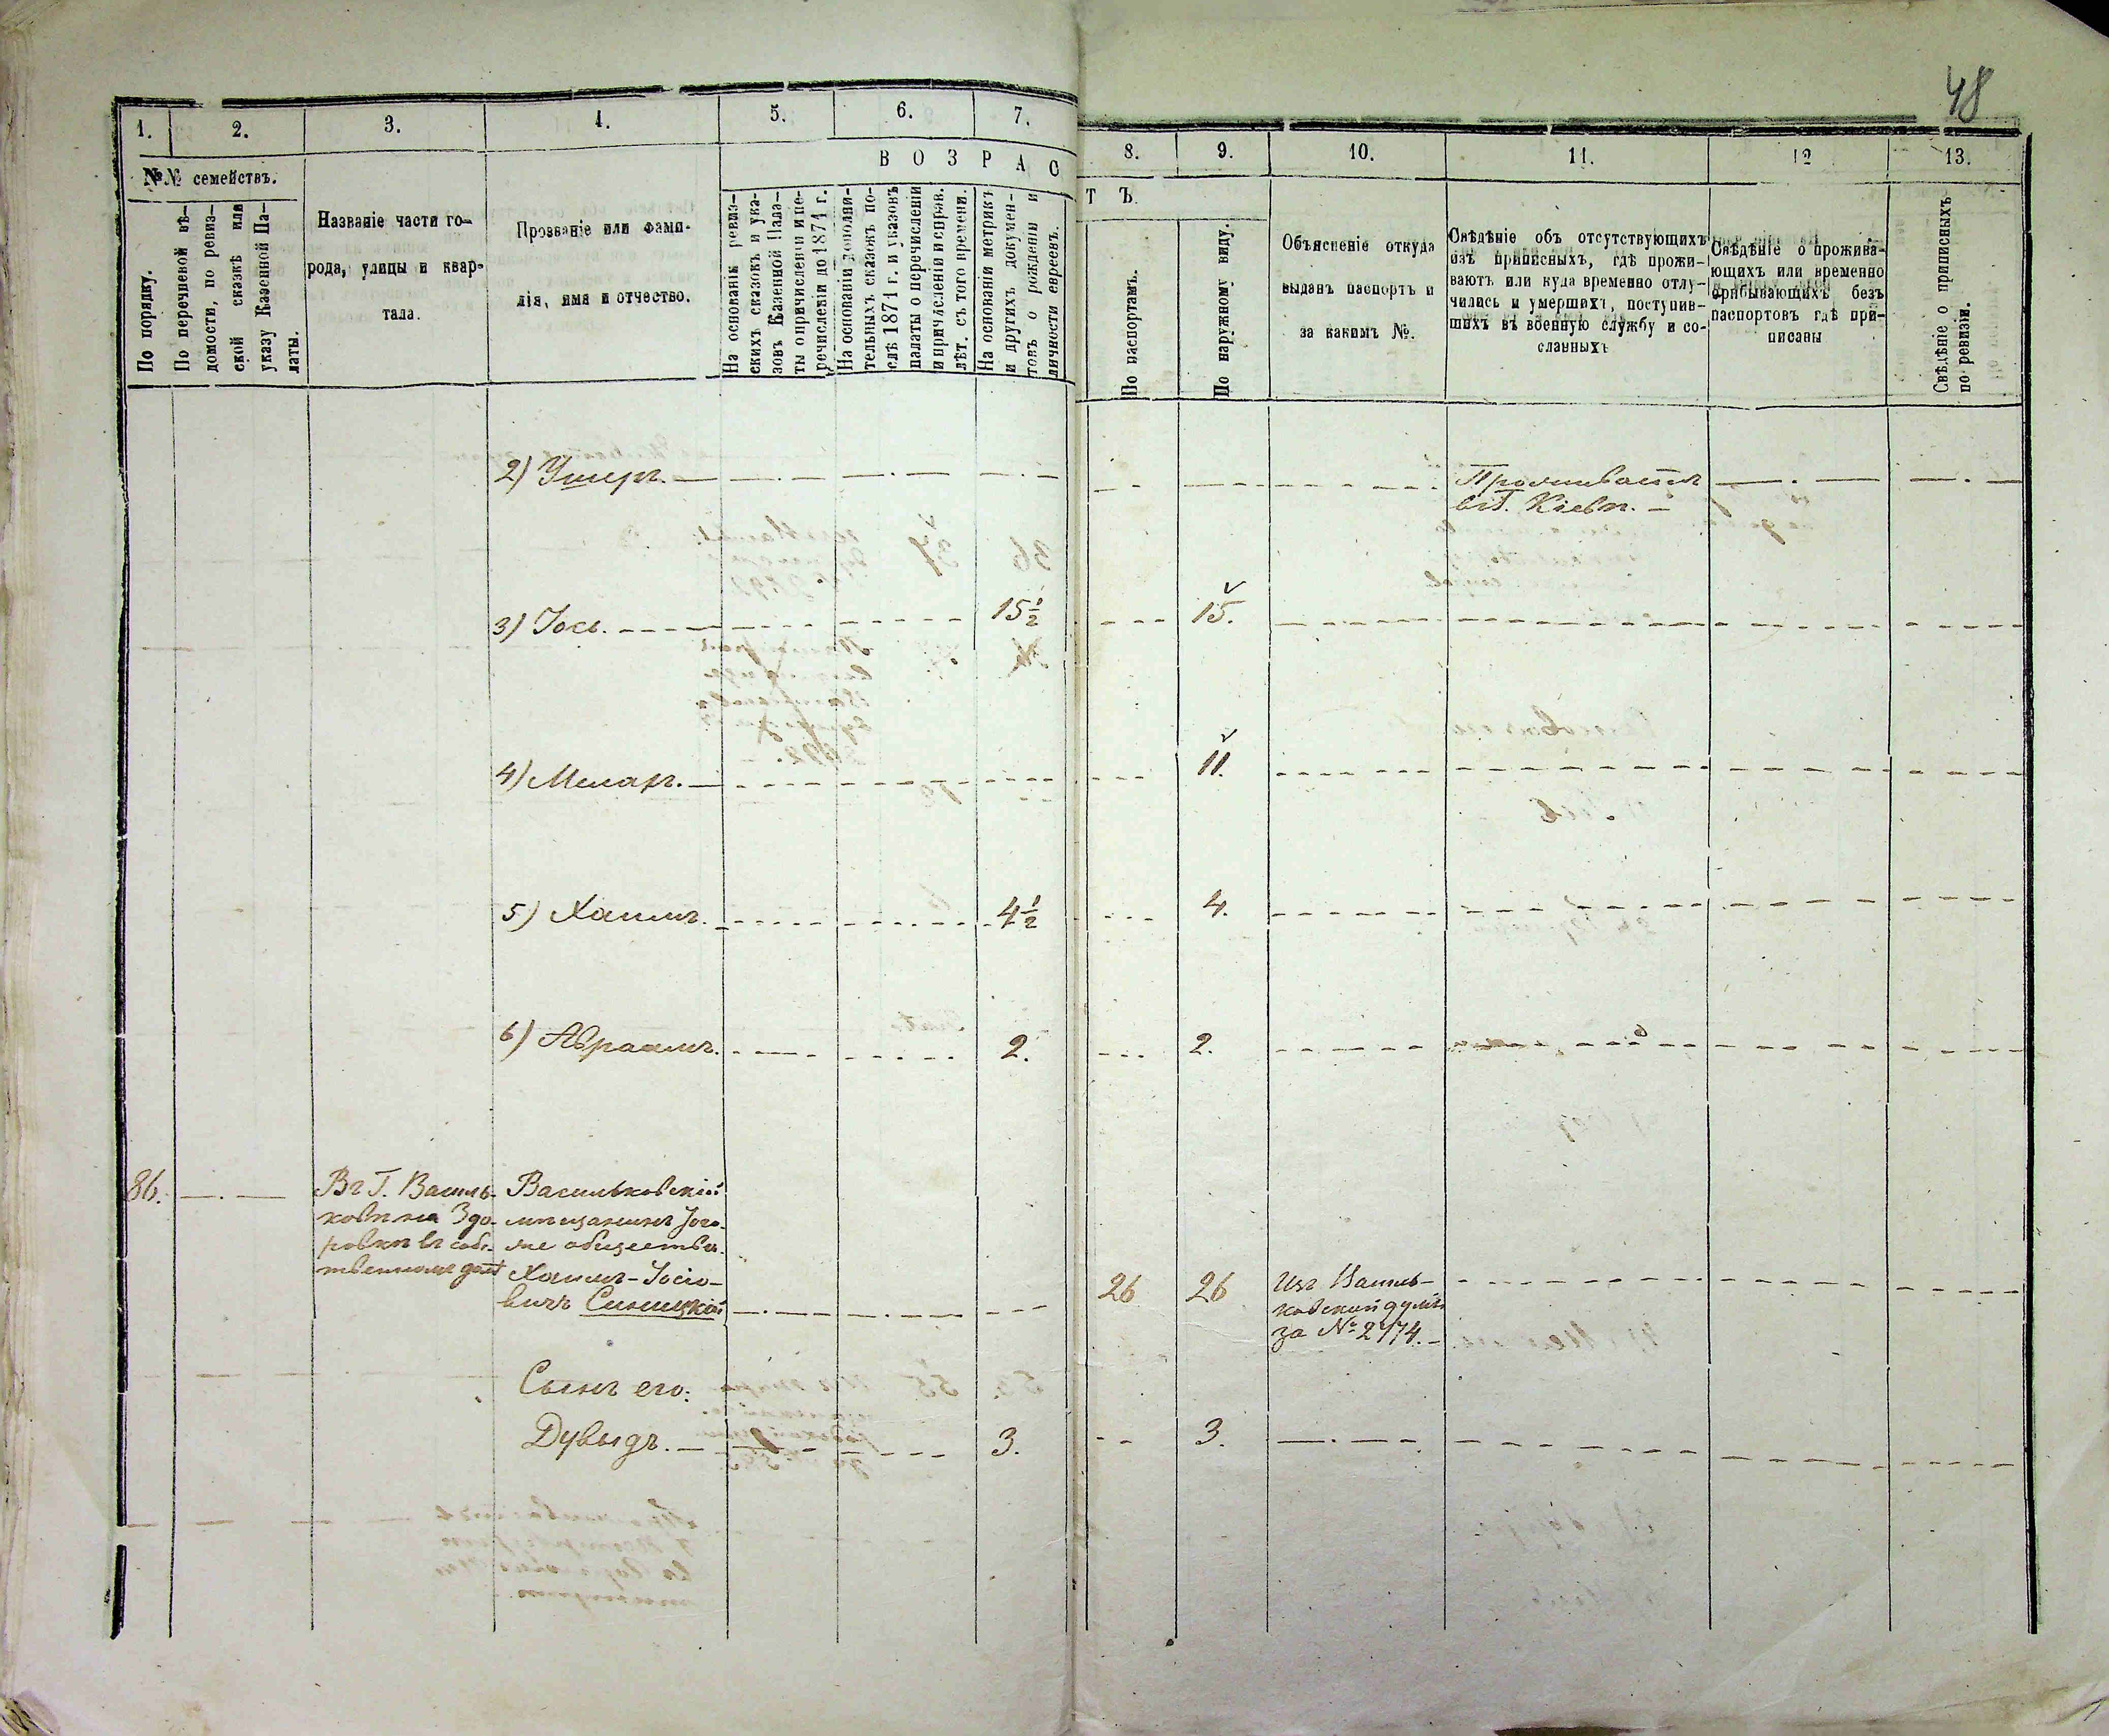 48
1. 2. 3. 4. 5. 6. 7. 8. 9. 10. 11. 12 13.
ВОЗРАСТЪ.
№№ семействъ.
По порядку.
По перечневой вѣ-
домости, по ревиз-
ской сказкѣ или
указу Казенной Па-
латы.
Названіе части го-
рода, улицы и квар-
тала.
Прозваніе или фами-
лія, имя и отчество.
На основаніи ревиз-
скихъ сказокъ и ука-
зовъ Казенной Пала-
ты о причисленіи и пе-
речисленіи до 1871 г.
На основаніи дополни-
тельныхъ сказокъ по-
слѣ 1871 г. и указовъ
палаты о перечисленіи
и причисленіи и справ.
лѣт. съ того времени.
На основаніи метрикъ
и другихъ докумен-
товъ о рожденіи и
личности евреевъ.
По паспортамъ.
По наружному виду.
Объясненіе откуда
выданъ паспортъ и
за какимъ №.
Свѣдѣніе объ отсутствующихъ
изъ приписныхъ, гдѣ прожи-
ваютъ или куда временно отлу-
чились и умершихъ, поступив-
шихъ въ военную службу и со-
сланныхъ
Свѣдѣніе о прожива-
ющихъ или временно
прибывающихъ безъ
паспортовъ гдѣ при-
писаны
Свѣдѣніе о приписныхъ
по ревизіи.
2) Ушеръ. Проживаетъ
въ Г. Кіевѣ.
3) Іось. 15½ 15.
4) Меларъ. 11.
5) Хаимъ. 4½ 4.
6) Авраамъ. 2. 2.
86. Въ Г. Василь-
ковѣ на Здо-
ровкѣ въ соб-
ственномъ домѣ
Васильковскій
мѣщанинъ Того-
же общества
Хаимъ-Іосіо-
вичъ Синицкій 26 26 Изъ Василь-
ковской думы
за № 2474.
Сынъ его:
Дувыдъ. 3. 3.